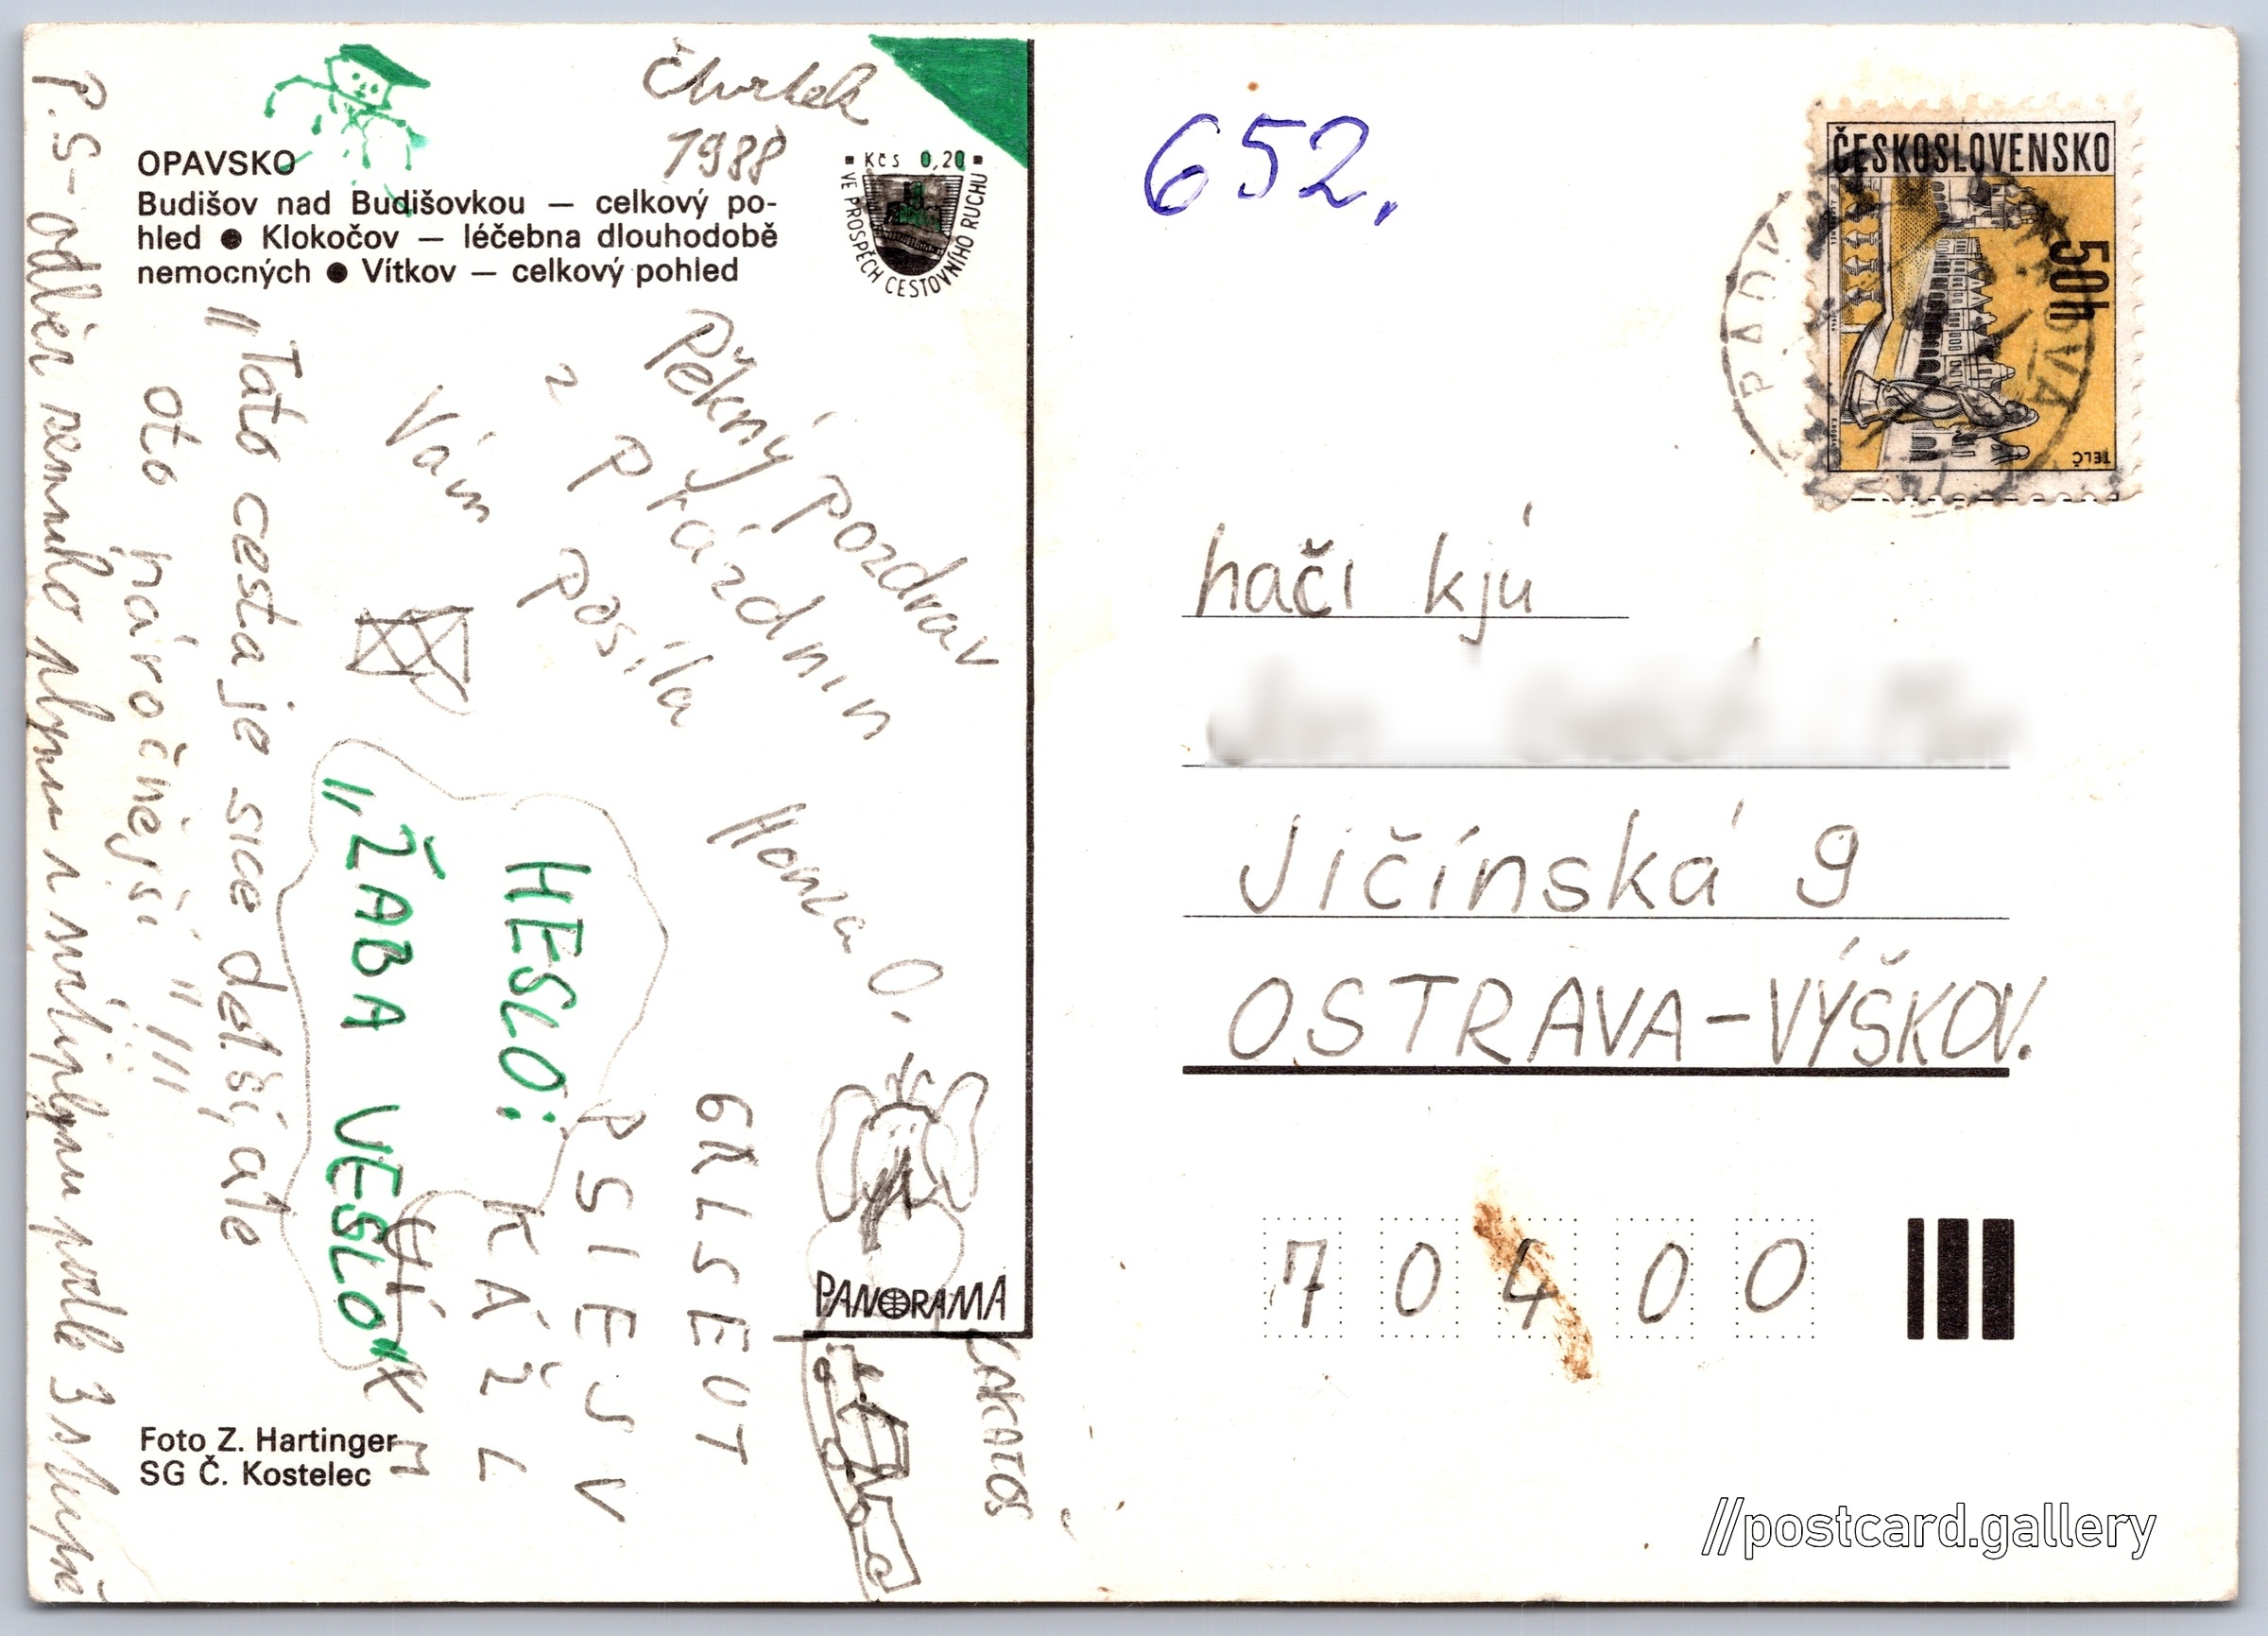 Čtvrtek
1988
OPAVSKO
Budišov nad Budišovkou — celkový po-
hled ● Klokočov — léčebna dlouhodobě
nemocných ● Vítkov — celkový pohled
Kčs 0,20
VE PROSPĚCH CESTOVNÍHO RUCHU
Pěkný pozdrav
z prázdnin
Vám posílá
Honza O.
HESLO:
„ŽABA VESLO"
„Tato cesta je sice delší, ale
oto náročnější" !!!
P.S-odběr zemního plynu
podle
PSIEJSV
KÁŽL
LAKATOŠ
PANORAMA
Foto Z. Hartinger
SG Č. Kostelec
652.
ČESKOSLOVENSKO
50h
TELČ
hačí kjú
Jičínská 9
OSTRAVA-VÝŠKOV.
70400
//postcard.gallery